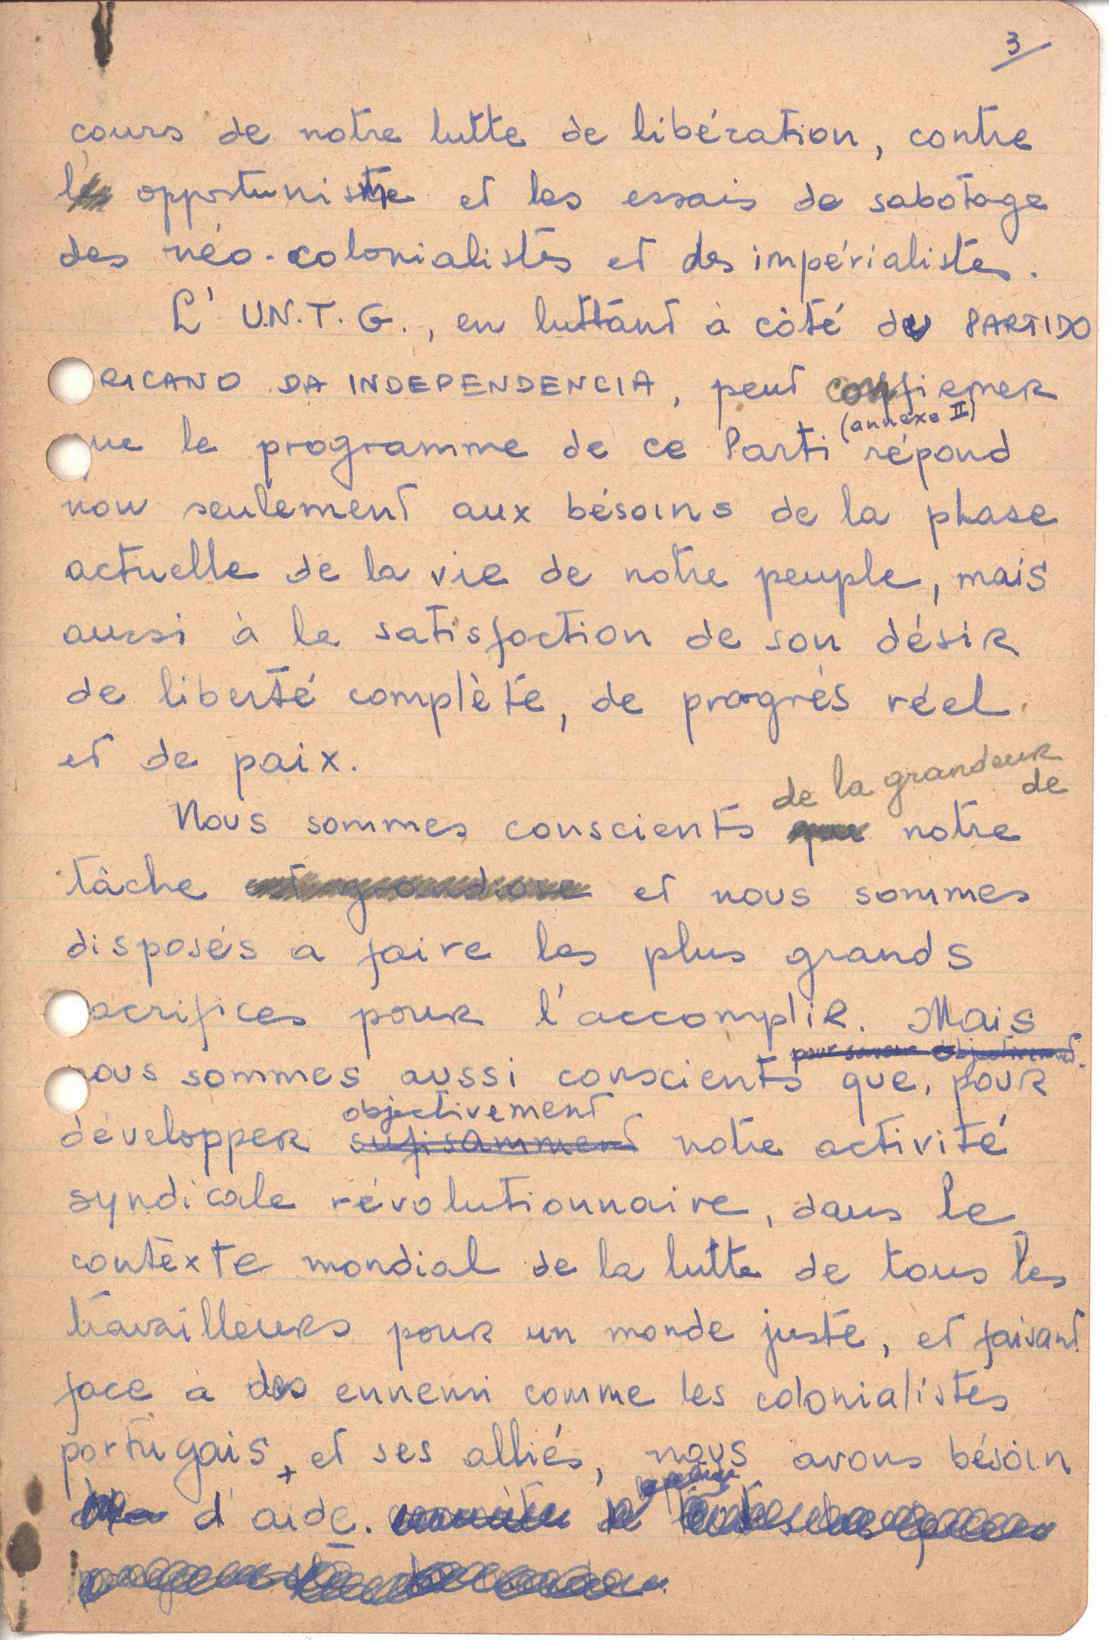 3
cours de notre lutte de libération, contre
opportunisme et les essais de sabotage
des néo-colonialistes et des impérialistes.
L' U.N.T.G., en luttant à côté du PARTIDO
RICANO DA INDEPENDENCIA, peut confirmer
(annexe II)
ue le programme de ce Parti répond
non seulement aux bésoins de la phase
actuelle de la vie de notre peuple, mais
aussi à la satisfaction de son désir
de liberté complète, de progrés réel
et de paix.
de la grandeur
de
Nous sommes conscients que notre
tâche est grandiose et nous sommes
disposés a faire les plus grands
acrifices pour l'accomplir. Mais
pour savoir objectivement
nous sommes aussi conscients que, pour
objectivement
développer sufisamment notre activité
syndicale révolutionnaire, dans le
contexte mondial de la lutte de tous les
travailleurs pour un monde juste, et faisant
face à des ennemi comme les colonialistes
portugais, et ses alliés, nous avons bésoin
d'aide.